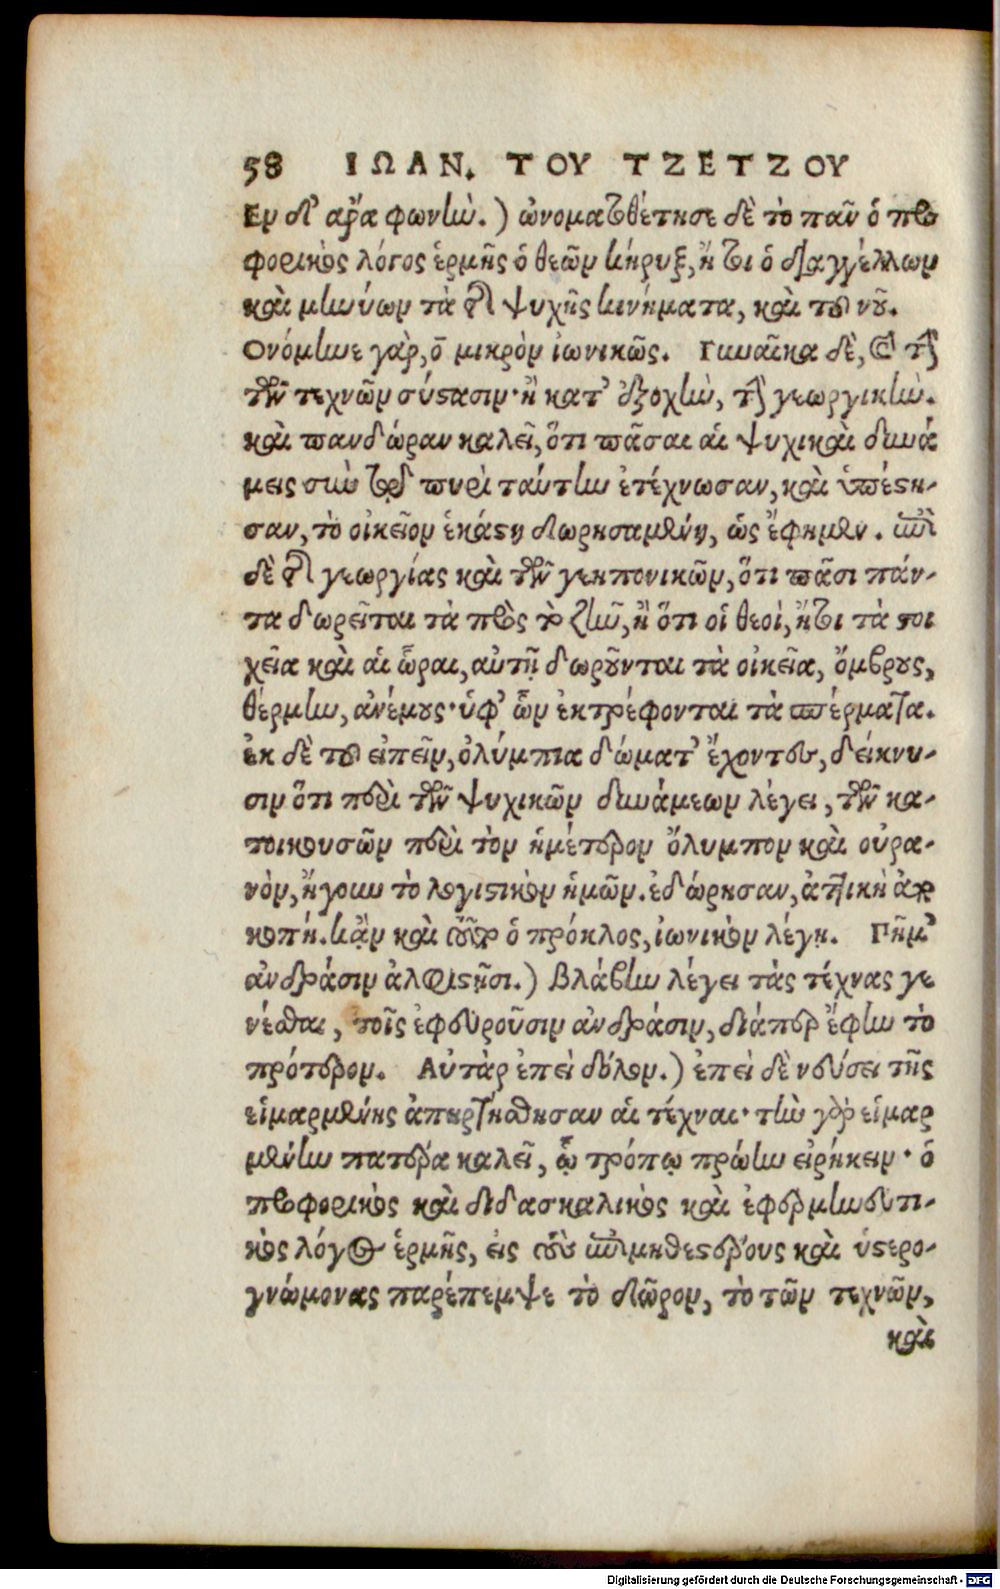 58 ΙΩΑΝ. ΤΟΥ ΤΖΕΤΖΟΥ
Εν δ' ἄρα φωνὴν.) ὠνοματοθέτησε δὲ τὸ πᾶν ὁ προ
φορικὸς λόγος ἑρμῆς ὁ θεῶν κήρυξ, ἤτοι ὁ διαγγέλλων
καὶ μηνύων τὰ τῆς ψυχῆς κινήματα, καὶ τοῦ νοῦ.
Ονόμηνε γὰρ, ο μικρὸν ἰωνικῶς. Γυναῖκα δὲ, καὶ τὴν
τῶν τεχνῶν σύστασιν· ἢ κατ' ἐξοχὴν, τὴν γεωργικὴν.
καὶ πανδώραν καλεῖ, ὅτι πᾶσαι αἱ ψυχικαὶ δυνά
μεις σὺν τῷ πυρὶ ταύτην ἐτέχνωσαν, καὶ ὑπέστη-
σαν, τὸ οἰκεῖον ἑκάστη δωρησαμένη, ὡς ἔφημεν. ἐπὶ
δὲ τῆς γεωργίας καὶ τῶν γεηπονικῶν, ὅτι πᾶσι πάν-
τα δωρεῖται τὰ πρὸς τὸ ζῆν, ἢ ὅτι οἱ θεοὶ, ἤτοι τὰ στοι
χεῖα καὶ αἱ ὧραι, αὐτῇ δωροῦνται τὰ οἰκεῖα, ὄμβρους,
θέρμην, ἀνέμους· ὑφ' ὧν ἐκτρέφονται τὰ σπέρματα.
ἐκ δὲ τοῦ εἰπεῖν, ὀλύμπια δώματ' ἔχοντες, δείκνυ-
σιν ὅτι περὶ τῶν ψυχικῶν δυνάμεων λέγει, τῶν κα-
τοικουσῶν περὶ τὸν ἡμέτερον ὄλυμπον καὶ οὐρα-
νὸν, ἤγουν τὸ λογιστικὸν ἡμῶν. ἐδώρησαν, ἀττικὴ ἀπο
κοπή. κἂν καὶ οὗτος ὁ πρόκλος, ἰωνικὸν λέγῃ. Πῆμ'
ἀνδράσιν ἀλφιστῇσι.) βλάβην λέγει τὰς τέχνας γε
νέσθαι, τοῖς ἐφευροῦσιν ἀνδράσιν, διάπερ ἔφην τὸ
πρότερον. Αὐτὰρ ἐπεὶ δόλον.) ἐπεὶ δὲ νεύσει τῆς
εἱμαρμένης ἀπηρτήσθησαν αἱ τέχναι· τὴν γὰρ εἱμαρ
μένην πατέρα καλεῖ, ᾧ τρόπῳ πρώην εἰρήκειν· ὁ
προφορικὸς καὶ διδασκαλικὸς καὶ ἐφερμηνευτι-
κὸς λόγος ἑρμῆς, εἰς τοὺς ἐπιμηθεστέρους καὶ ὑστερο-
γνώμονας παρέπεμψε τὸ δῶρον, τὸ τῶν τεχνῶν,
καὶ
Digitalisierung gefördert durch die Deutsche Forschungsgemeinschaft - DFG